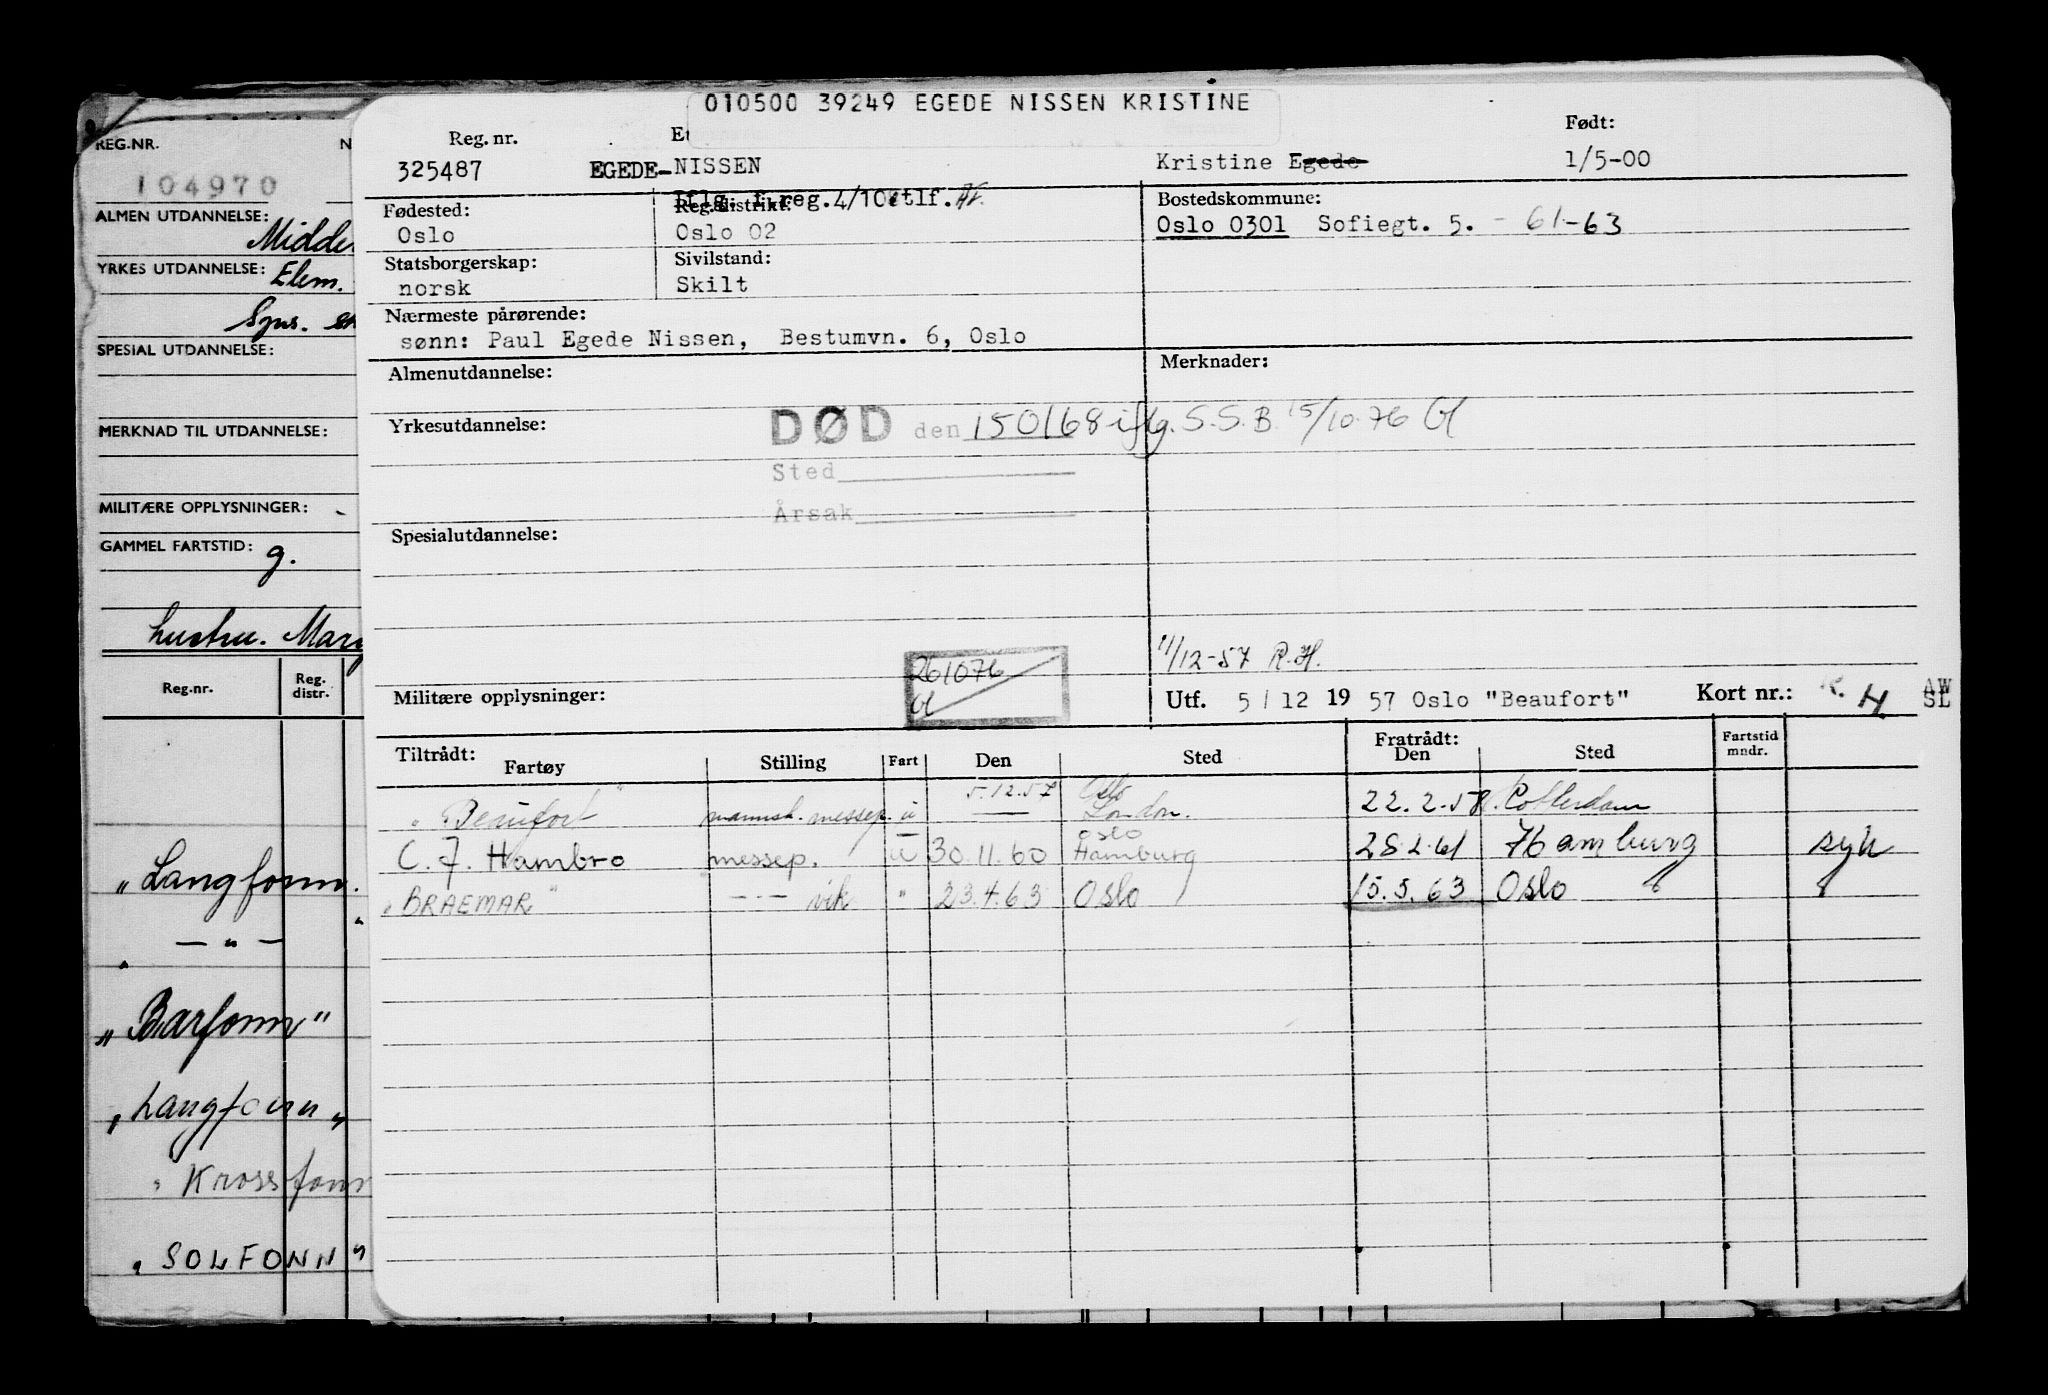 010500 39249 EGEDE NISSEN KRISTINE
Reg. nr. Født:
325487 EGEDE-NISSEN Kristine Egede 1/5-00
Iflg. f.reg.4/10 tlf.
Fødested: Reg. distrikt: Bostedskommune:
Oslo Oslo 02 Oslo 0301 Sofiegt. 5. - 61-63
Statsborgerskap: Sivilstand:
norsk Skilt
Nærmeste pårørende:
sønn: Paul Egede Nissen, Bestumvn. 6, Oslo
Almenutdannelse: Merknader:
Yrkesutdannelse: DØD den 150168 iflg. S.S.B. 15/10-76 Gl
Sted
Årsak
Spesialutdannelse:
11/12-57 R.H.
261076
Gl
Militære opplysninger: Utf. 5/12 19 57 Oslo "Beaufort" Kort nr.: K. H. AW
SL
Tiltrådt: Fratrådt:
Fartøy Stilling Fart Den Sted Den Sted Fartstid mndr.
5.12.57 Oslo
"Beaufort" mannsk. messep. u — London. 22.2.58 Rotterdam
Oslo
C. J. Hambro messep. u 30.11.60 Hamburg 28.2.61 Hamburg syk
"BRAEMAR" —"— vik " 23.4.63 Oslo 15.5.63 Oslo
REG.NR. N
104970
ALMEN UTDANNELSE:
YRKES UTDANNELSE: Elem.
Syns.
SPESIAL UTDANNELSE:
MERKNAD TIL UTDANNELSE:
MILITÆRE OPPLYSNINGER: -
GAMMEL FARTSTID: g.
hustru. Mar
Reg.nr. Reg. distr.
"Langfonn.
— " —
"Barfonn"
"Langfonn"
"Krossfonn
"SOLFONN"